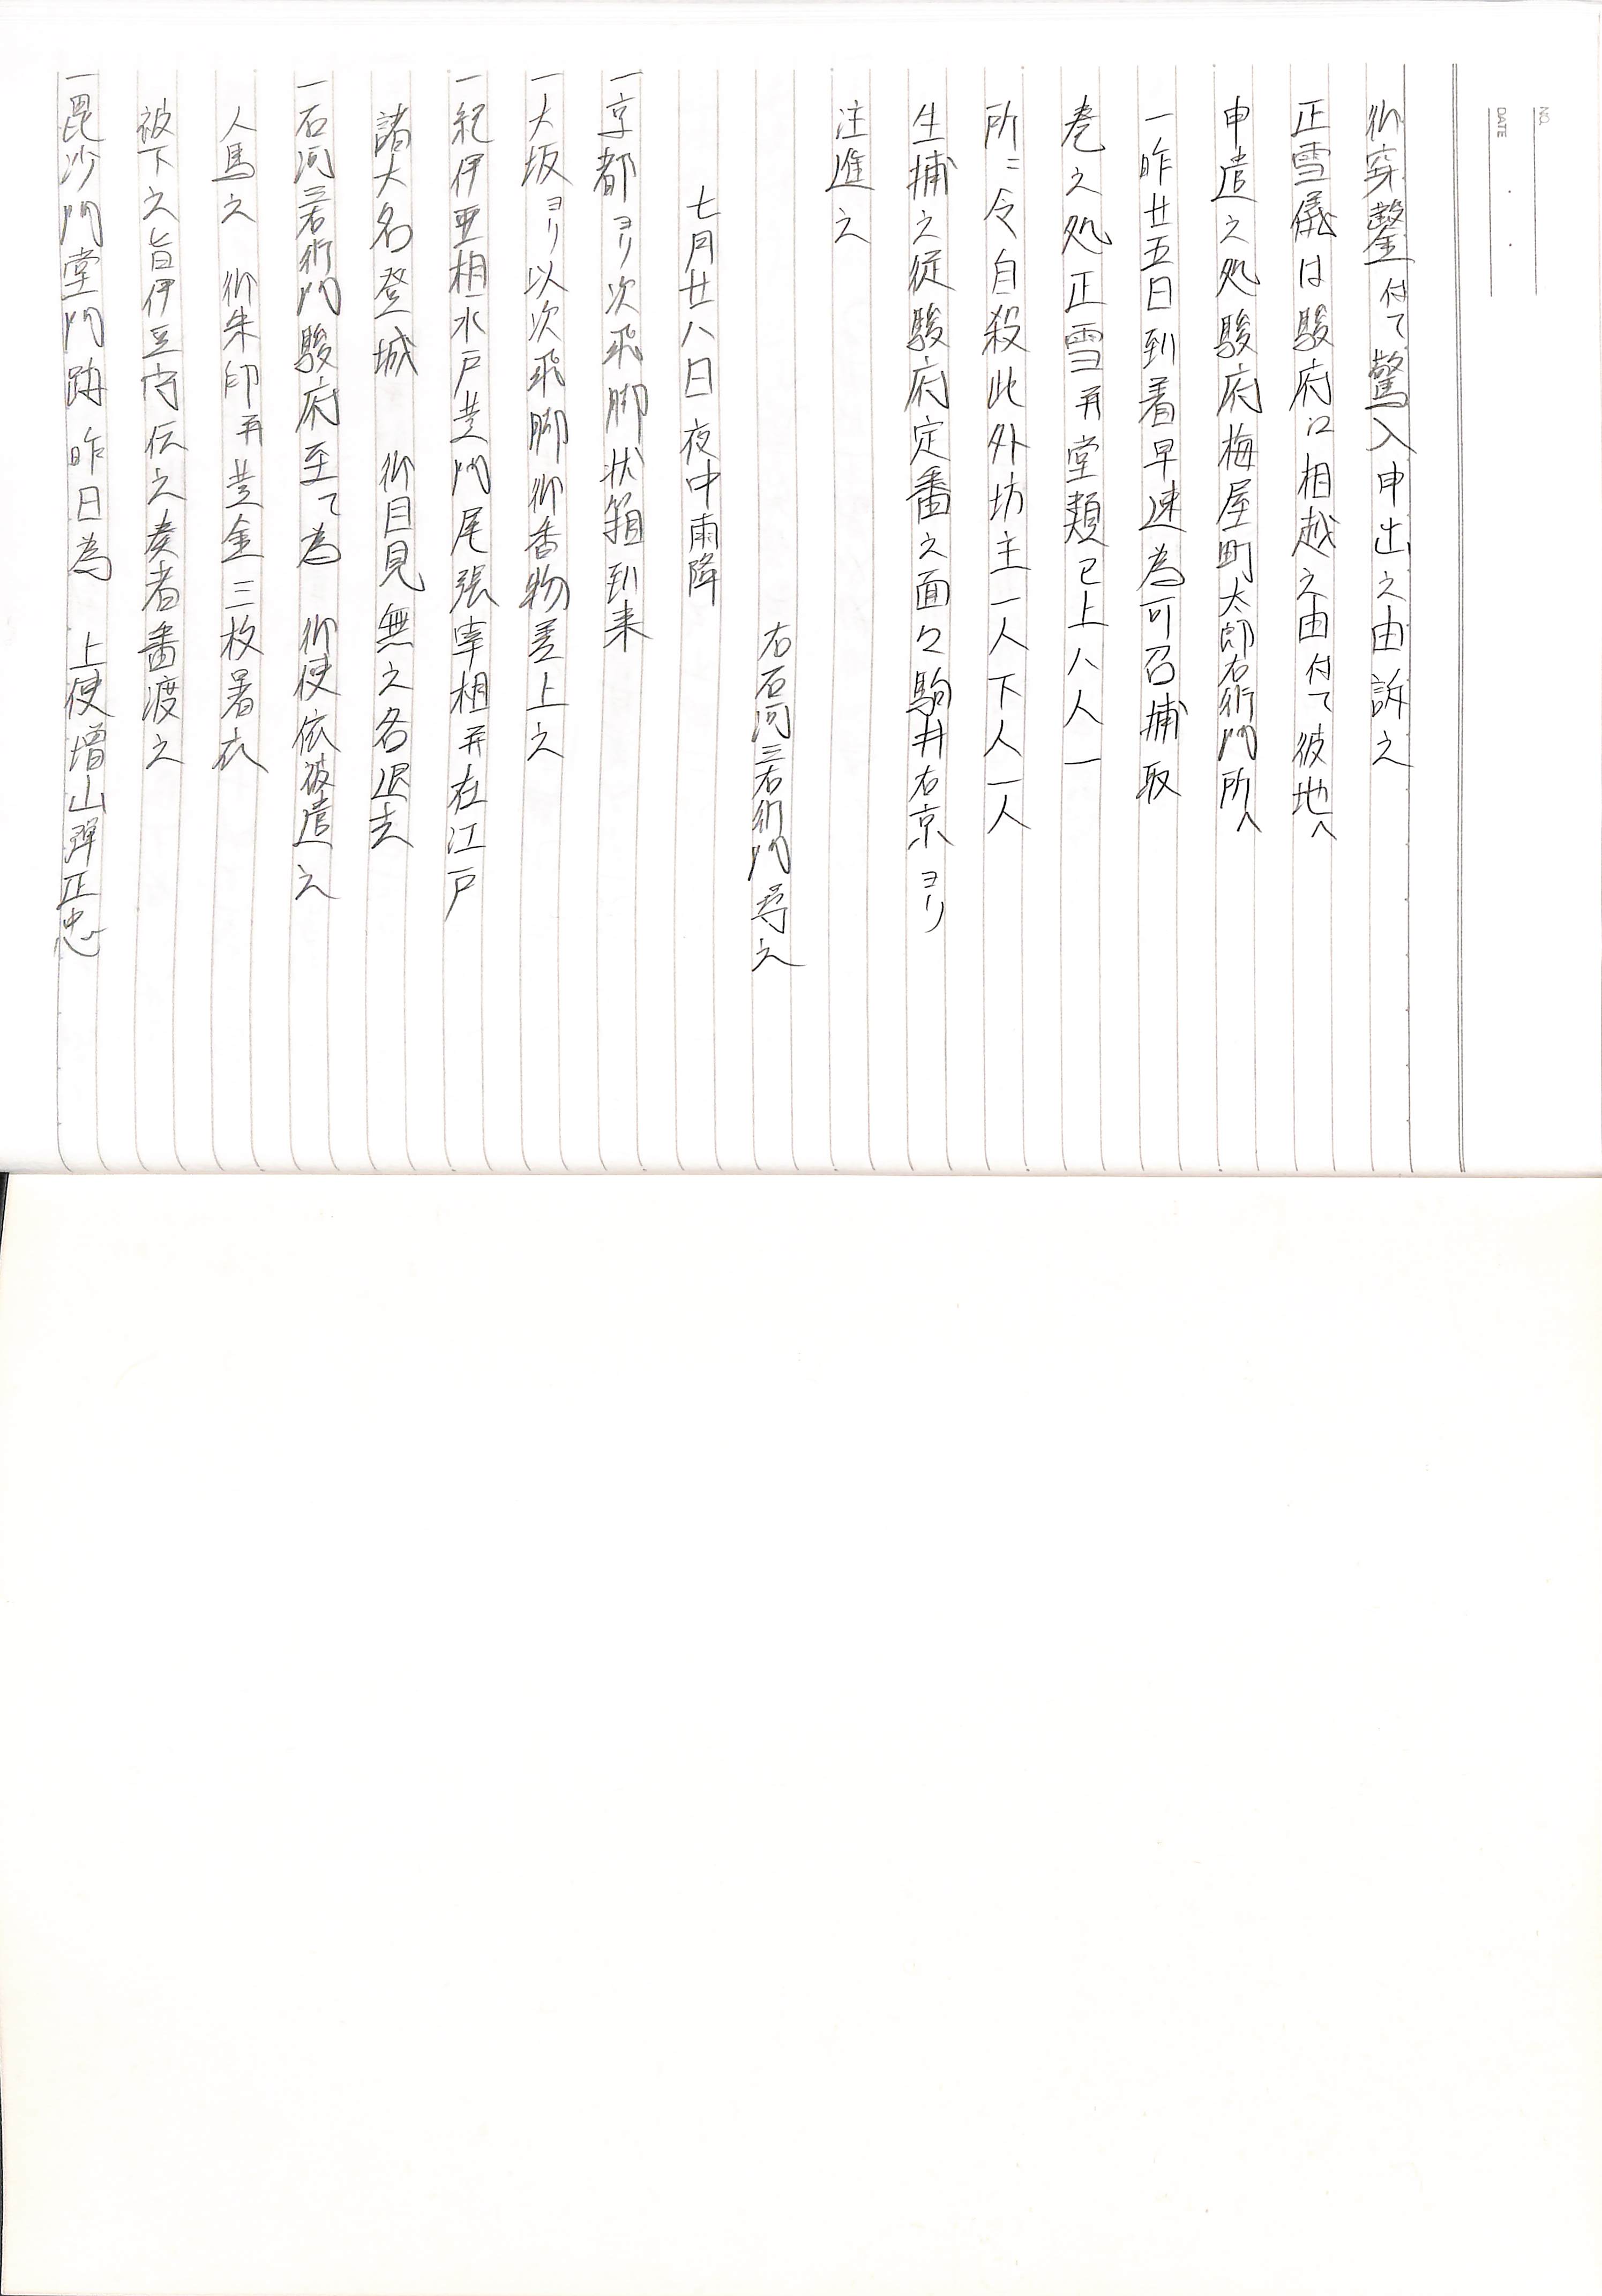 御穿鑿付て驚入申出之由訴之
正雪儀は駿府江相越之由付て彼地へ
申遣之処駿府梅屋町太郎右衛門所へ
一昨廿五日到着早速為可召捕取
巻之処正雪并堂類已上八人一
所ニ令自殺此外坊主一人下人一人
生捕之従駿府定番之面々駒井右京ヨリ
注進之
右石河三右衛門尋之
七月廿八日夜中雨降
一京都ヨリ次飛脚状箱到来
一大坂ヨリ以次飛脚御香物差上之
一紀伊亜相水戸黄門尾張宰相并在江戸
諸大名登城 御目見無之各退去
一石河三右衛門駿府至て為 御使依被遣之
人馬之 御朱印并黄金三枚暑衣
被下之旨伊豆守伝之奏者番渡之
一毘沙門堂門跡昨日為 上使増山弾正忠
NO.
DATE ・ ・